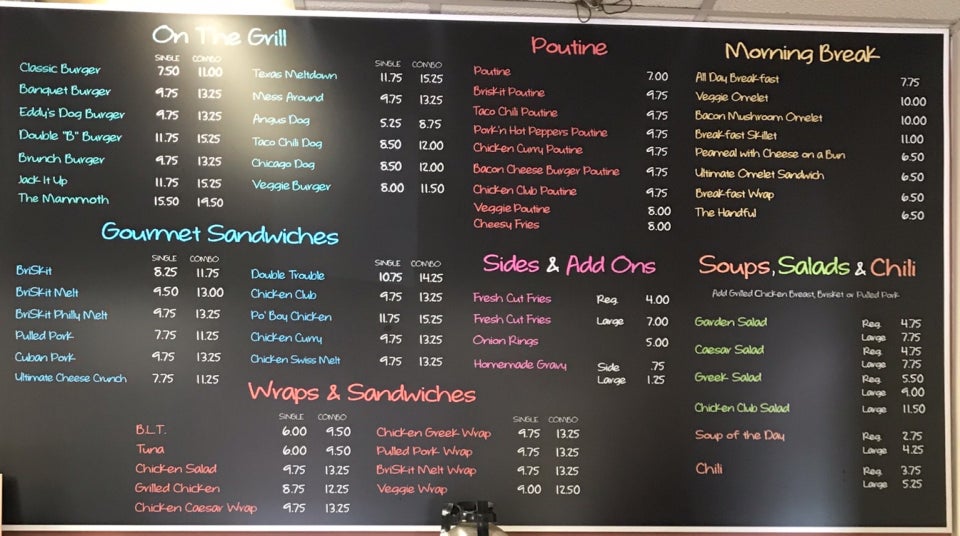 On The Grill
SINGLE COMBO
Classic Burger 7.50 11.00
Banquet Burger 9.75 13.25
Eddy's Dog Burger 9.75 13.25
Double "B" Burger 11.75 15.25
Brunch Burger 9.75 13.25
Jack It Up 11.75 15.25
The Mammoth 15.50 19.50
SINGLE COMBO
Texas Meltdown 11.75 15.25
Mess Around 9.75 13.25
Angus Dog 5.25 8.75
Taco Chili Dog 8.50 12.00
Chicago Dog 8.50 12.00
Veggie Burger 8.00 11.50
Gourmet Sandwiches
SINGLE COMBO
BriSkit 8.25 11.75
BriSkit Melt 9.50 13.00
BriSkit Philly Melt 9.75 13.25
Pulled Pork 7.75 11.25
Cuban Pork 9.75 13.25
Ultimate Cheese Crunch 7.75 11.25
SINGLE COMBO
Double Trouble 10.75 14.25
Chicken Club 9.75 13.25
Po' Boy Chicken 11.75 15.25
Chicken Curry 9.75 13.25
Chicken Swiss Melt 9.75 13.25
Wraps & Sandwiches
SINGLE COMBO
B.L.T. 6.00 9.50
Tuna 6.00 9.50
Chicken Salad 9.75 13.25
Grilled Chicken 8.75 12.25
Chicken Caesar Wrap 9.75 13.25
SINGLE COMBO
Chicken Greek Wrap 9.75 13.25
Pulled Pork Wrap 9.75 13.25
BriSkit Melt Wrap 9.75 13.25
Veggie Wrap 9.00 12.50
Poutine
Poutine 7.00
Briskit Poutine 9.75
Taco Chili Poutine 9.75
Pork'n Hot Peppers Poutine 9.75
Chicken Curry Poutine 9.75
Bacon Cheese Burger Poutine 9.75
Chicken Club Poutine 9.75
Veggie Poutine 8.00
Cheesy Fries 8.00
Sides & Add Ons
Fresh Cut Fries Reg. 4.00
Fresh Cut Fries Large 7.00
Onion Rings 5.00
Homemade Gravy Side .75
Large 1.25
Morning Break
All Day Breakfast 7.75
Veggie Omelet 10.00
Bacon Mushroom Omelet 10.00
Breakfast Skillet 11.00
Peameal with Cheese on a Bun 6.50
Ultimate Omelet Sandwich 6.50
Breakfast Wrap 6.50
The Handful 6.50
Soups, Salads & Chili
Add Grilled Chicken Breast, Brisket or Pulled Pork
Garden Salad Reg. 4.75
Large 7.75
Caesar Salad Reg. 4.75
Large 7.75
Greek Salad Reg. 5.50
Large 9.00
Chicken Club Salad Large 11.50
Soup of the Day Reg. 2.75
Large 4.25
Chili Reg. 3.75
Large 5.25